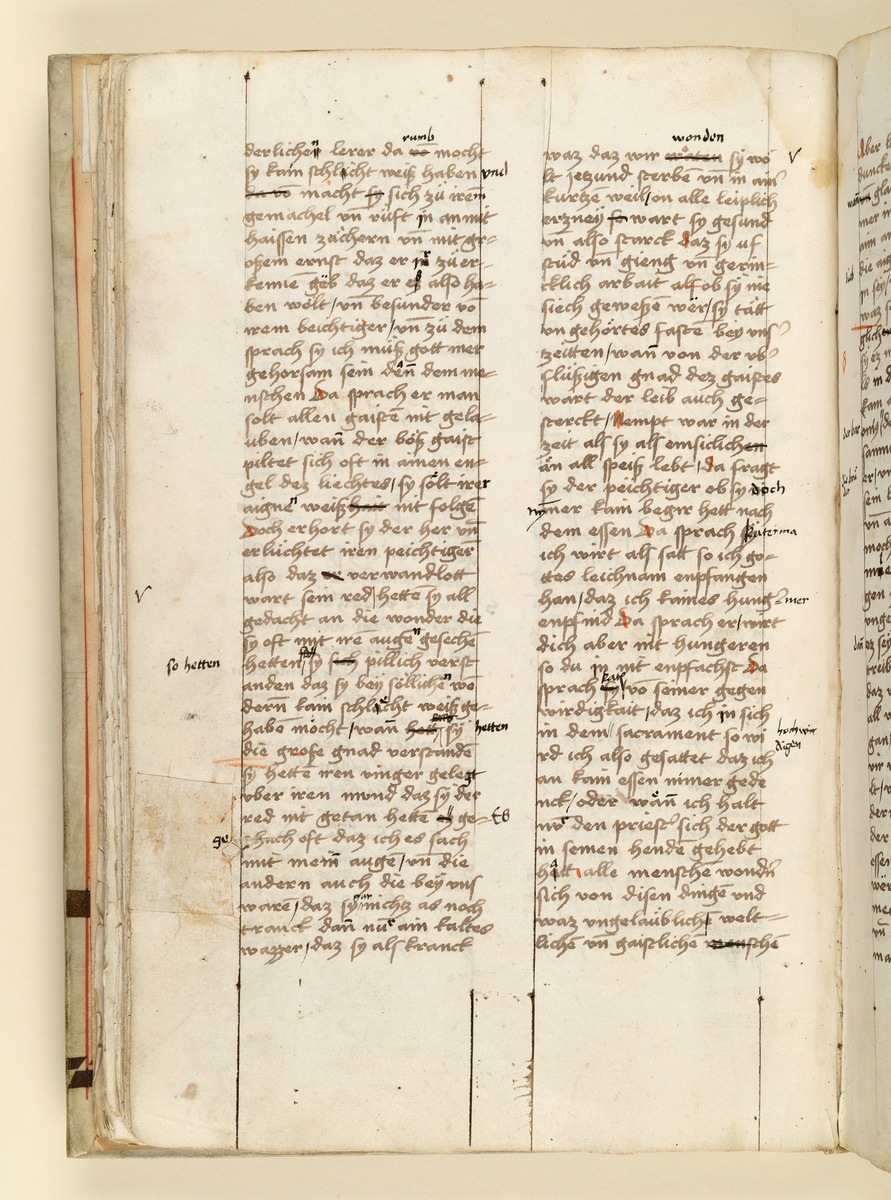 derlichen lerer da rumb mocht
sy kain schlächt weiß haben und
macht sich zü irem
gemachel vn̄ rüft in an mit
haissen zächern vn̄ mit gr=
oßem ernst daz er ir zü er=
kennē gëb daz er es also ha=
ben wölt / vn̄ besunder vō
irem beichtiger / vn̄ zü dem
sprach sy ich müß gott mer
gehorsam sein dēn dem me=
nschen Da sprach er man
solt allen gaistē nit gela=
uben / wan̄ der böß gaist
piltet sich oft in ainen en=
gel dez liechtes / sy sölt irer
aignen weißhait nit folgē
Doch erhort sy der her vn̄
erlüchtet iren peichtiger
also daz verwandlott
wart sein red / hette sy all
gedacht an die wonder die
sy oft mit ire augen gesechē
so hetten
hetten / sy pillich verst
anden daz sy bey söllichen wō
dern̄ kain schlächt weiß ge=
haben möcht / wan̄ sy hetten
die große gnad verstandē
sy hettē iren vinger gelegt
vber iren mond daz sy der
red nit getan hettē ge=
hach oft daz ich es sach
mit mein̄ augē / vn̄ die
andern auch die bey vns
warē / daz sy gar nichtz as noch
tranck dan̄ nur ain kaltes
wazzer / daz sy als kranck
waz daz wir wonden sy wö
lt jetzund sterbē vn̄ in ain̄
kurtzē weil / on alle leiplich
erzney wart sy gesund
vn̄ also starck daz sy uf
stüd vn̄ gieng vn̄ gerin=
cklich arbait als ob sy nie
siech geweßen wër / sy tätt
vn gehörtes fastē bey vns̄
zeitten / wan̄ von der vb̄
flüßigen gnad dez gaistes
wart der leib auch ge=
sterckt / Nempt war in der
zeit als sy als einsiclichen
än all speiß lebt / da fragt
sy der peichtiger ob sy doch
nymer kain begir hett nach
dem essen Da sprach katerina
ich wirt als satt so ich go=
tes leichnam enpfangen
han / daz ich kaines hunḡ mer
enpfind Da sprach er / wirt
dich aber nit hungeren
so du in nit enpfachst Da
sprach kath vō seiner gegen
wirdigkait / daz ich in sich
in dem sacrament so wi hochwir digen
rd ich also gesattet daz ich
an kain essen nimer gede
nck / oder wān ich halt
nur den priest̄ sich der gott
in seinen hendē gehebt
hätt alle menschē wondn̄
sich von disen dingē und
waz vngelaüblich welt=
lichē vn̄ gaistlichē